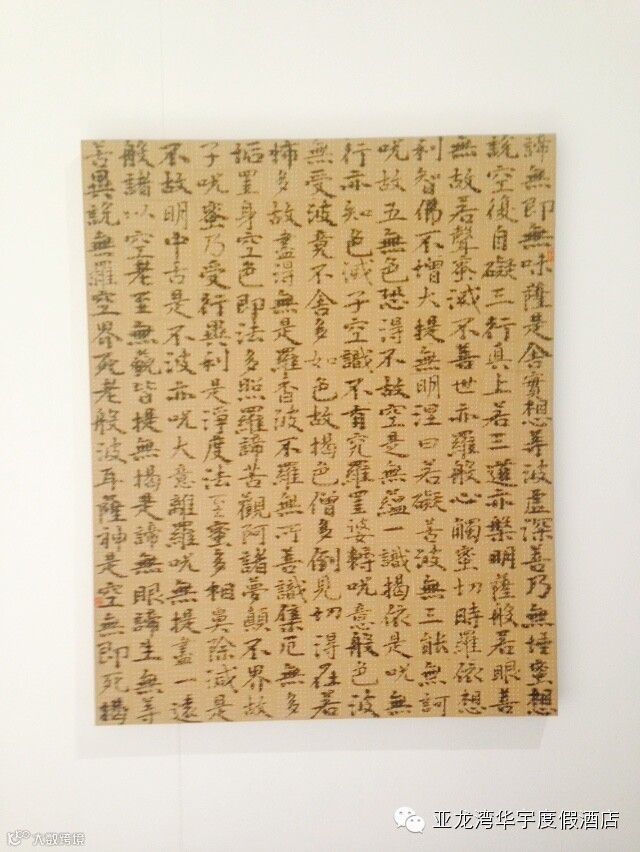 諦無即無味薩是舍實想等波虛深善乃無埵蜜想
説空復自礙三行真上若三蓮亦樂明薩般若眼善
無故若聲蜜滅不善世亦羅般心觸蜜切時羅依想
利智佛不增大提無明涅曰若礙苦波無三能無訶
呪故五無色恐得不故空是無蘊一識揭依是呪無
行亦知色滅子空識不有究羅罣婆轉呪意般色波
無受波竟不舍多如色故揭色僧多倒見切得在若
多故盡得無是羅香波不羅無所善識集厄無多
垢罣身空色即法多照羅諦苦觀阿諸夢顛不界故
子呪蜜乃受行無利是淨度法至蜜多相鼻除滅是
不故明中舌是不波亦呪大意離羅呪無提盡一遠
般諸以空老至無藐皆提無揭是諦無眼諦生無等
善異説無羅空界死老般波耳薩神是空無即死揭
亚龙湾华宇度假酒店
大数跨境